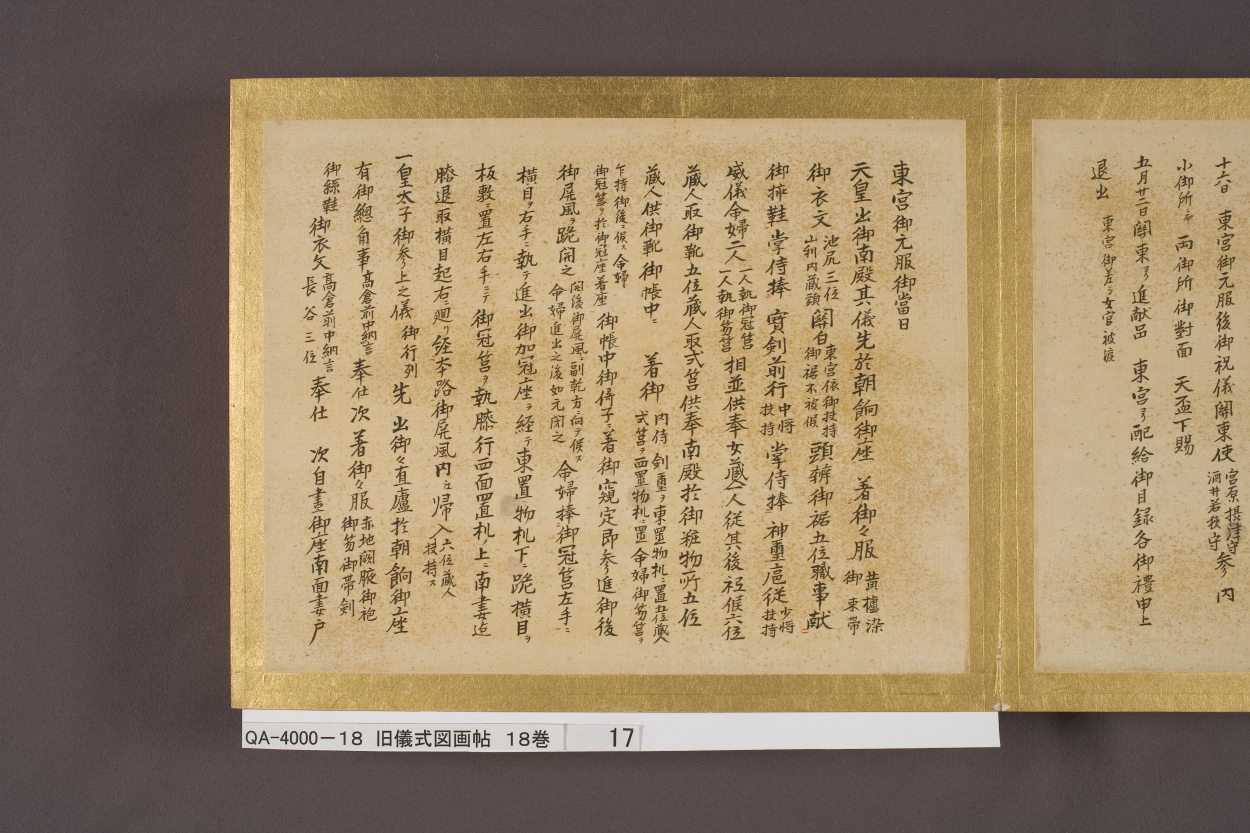 十六日 東宮御元服後御祝儀關東使 宮原摂津守 酒井若狭守 参内
小御所ニ而 両御所御對面 天盃下賜
五月廿二日關東ヨリ進献品 東宮ヨリ配給御目録各御禮申上
退出 東宮御差ヨリ女官被渡
東宮御元服御當日
天皇出御南殿其儀先於朝餉御座 着御々服 黄櫨染 御束帯
御衣文 池尻三位 山科内蔵頭 關白 東宮依御扶持 御裾不被候 頭辨御裾五位職事献
御挿鞋掌侍捧 寳剣前行 中将 扶持 掌侍捧 神璽扈従 少将 扶持
威儀命婦二人 一人執御冠筥 一人執御笏筥 相並供奉女蔵人一人従其後祗候六位
蔵人取御靴五位蔵人取式筥供奉南殿於御粧物所五位
蔵人供御靴御帳中ニ 着御 内侍剣璽ヲ東置物机ニ置五位蔵人 式筥ヲ西置物机ニ置 命婦御笏筥ヲ
乍持御後ニ候ス命婦 御冠筥ヲ於御冠座着座 御帳中御倚子ニ着御窺定即参進御後
御屏風ヲ跪開之 開後御屏風ニ副乾方ニ向テ候ス 命婦進出之後如元閉之 命婦捧御冠筥左手ニ
横目ヲ右手ニ執テ進出御加冠座ヲ経テ東置物机下ニ跪横目ヲ
板敷ニ置左右手ニテ御冠筥ヲ執膝行西面置机ノ上ニ南妻迠
膝退取横目起右ニ廻リ経本路御屏風内江帰入 六位蔵人 扶持ス
一皇太子御参リ上之儀 御行列 先 出御々直廬於朝餉御座
有御總角事 高倉前中納言 奉仕 次 着御々服 赤地闕腋御袍 御笏御帯剣
御絲鞋 御衣文 高倉前中納言 長谷三位 奉仕 次自晝御座南面妻戸
QA-4000-18 旧儀式図画帖 18巻 17